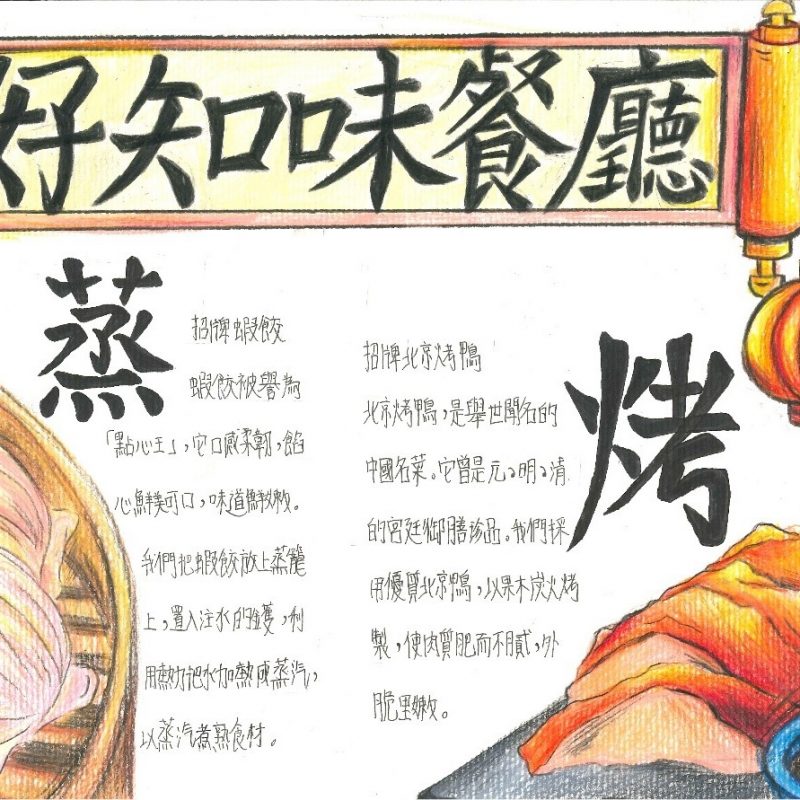 好知味餐廳
蒸
招牌蝦餃
蝦餃被譽為
「點心王」，它口感柔韌，餡
心鮮美可口，味道鮮嫩。
我們把蝦餃放上蒸籠
上，置入注水的鑊，利
用熱力把水加熱成蒸汽，
以蒸汽煮熟食材。
烤
招牌北京烤鴨
北京烤鴨，是舉世聞名的
中國名菜。它曾是元、明、清
的宮廷御膳珍品。我們採
用優質北京鴨，以果木炭火烤
製，使肉質肥而不貳，外
脆里嫩。